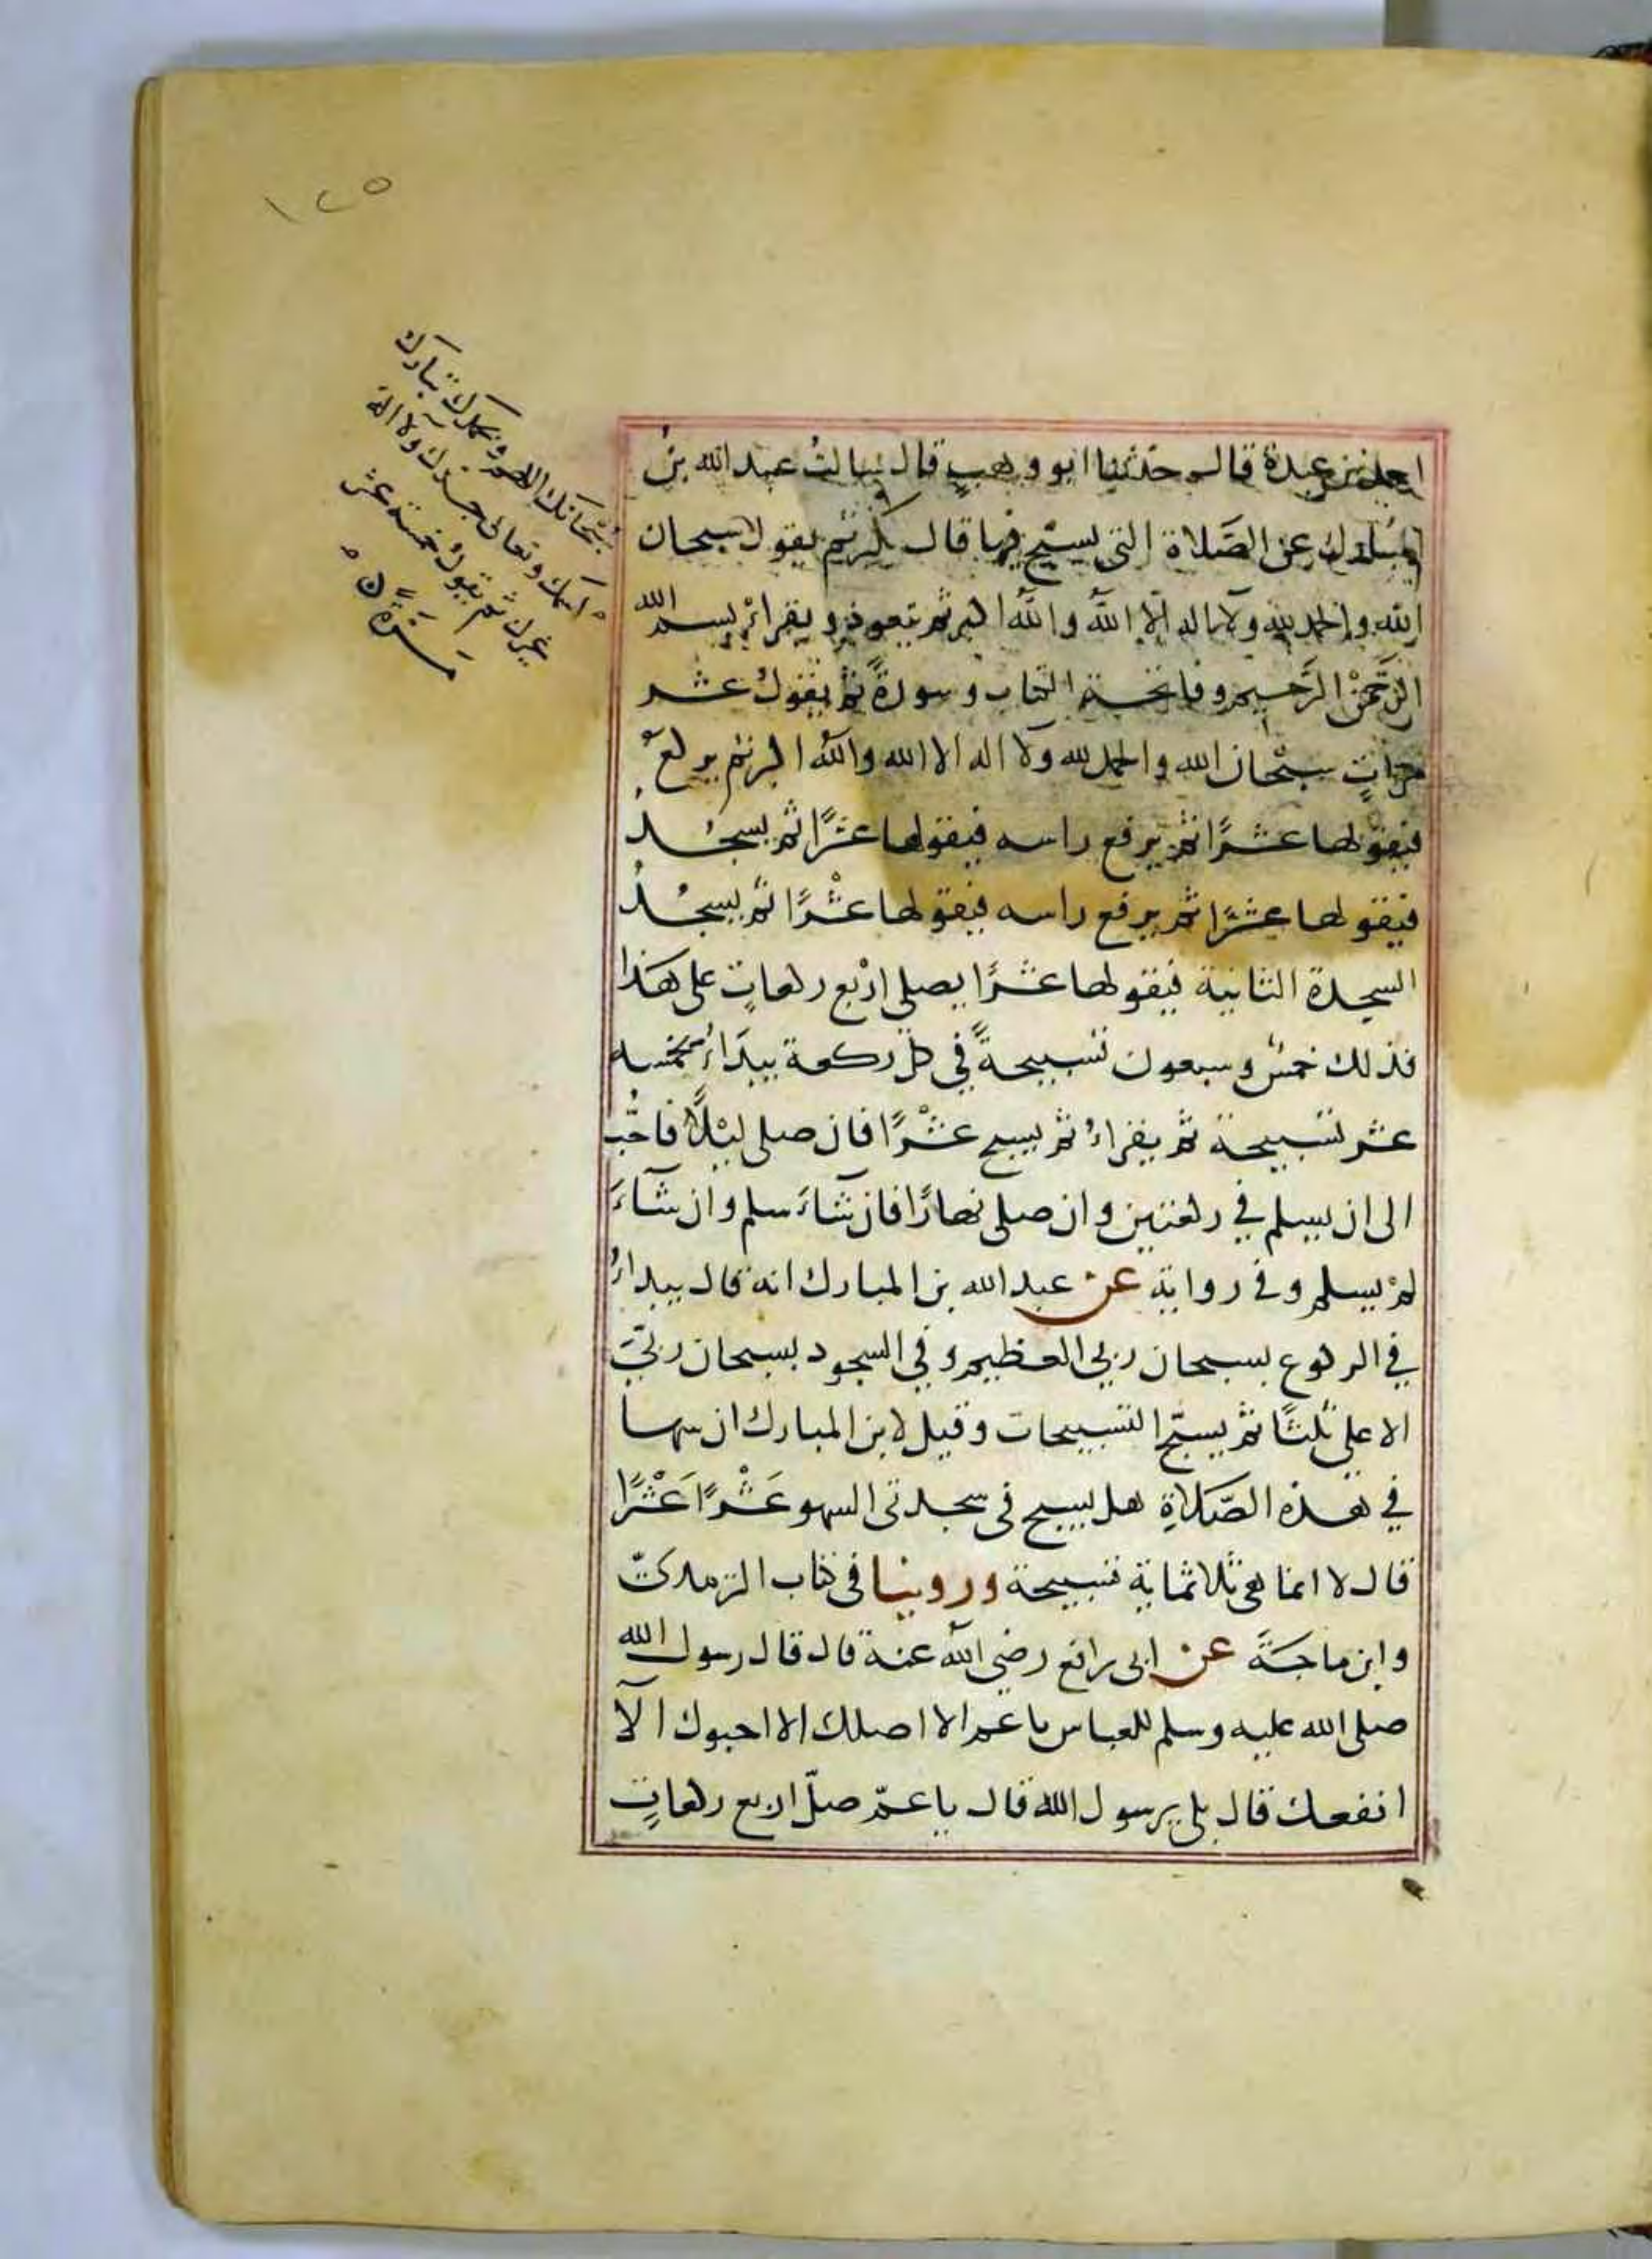 ١٢٥
سُبْحَانَكَ اللهم وبحمدك تبارك
اسمك وتعالى جدك ولا اله
غيرك ثم يقول خمسة عشر
مَرَّةً
احمد بن عبدة قال حدثنا ابو وهب قال سالتُ عبد الله بن
المبارك عن الصَّلاة التي يسبّح فيها قال يكبر ثم يقول سبحان
الله والحمد لله ولا اله الا الله والله اكبر ثم يتعوذ ويقراءُ بسم الله
الرَّحمن الرَّحيم وفاتحة الكتاب وسورةً ثم يقولُ عشر
مراتٍ سبْحان الله والحمد لله ولا اله الا الله والله اكبر ثم يركع
فيقولها عشرًا ثم يرفع راسه فيقولها عشرًا ثم يسجُدُ
فيقولها عشرًا ثم يرفع راسه فيقولها عشْرًا ثم يسجُدُ
السجدة الثانية فيقولها عشرًا يصلي ارْبع ركعاتٍ على هَذا
فذلك خمسٌ وسبعون تسبيحةً في كل ركعة يبدَاءُ بخمسه
عشر تسبيحة ثم يقراءُ ثم يسبح عشْرًا فان صلى ليْلاً فاحَبُّ
الى ان يسلم في ركعتين وان صلى نهارًا فان شآءَ سلم وان شآءَ
لمْ يسلم وفي رواية عن عبد الله بن المبارك انه قال يبداءُ
في الركوع بسبحان ربي العظيم وفي السجود بسبحان ربّيَ
الاعلى ثلثًا ثم يسبّح التسبيحات وقيل لابن المبارك ان سها
في هذه الصَّلاةِ هل يسبح في سجدتي السهو عَشْرًا عَشْرًا
قال لا انما هي ثلاثماية تسبيحة وروينا في كتاب الترمذيّ
وابن ماجَةَ عن ابي رافع رضي الله عنه قال قال رسول الله
صلى الله عليه وسلم للعباس يا عم الا اصلك الا احبوك الآ
انفعك قال بلى يرسول الله قال يا عمّ صلّ اربع ركعاتٍ